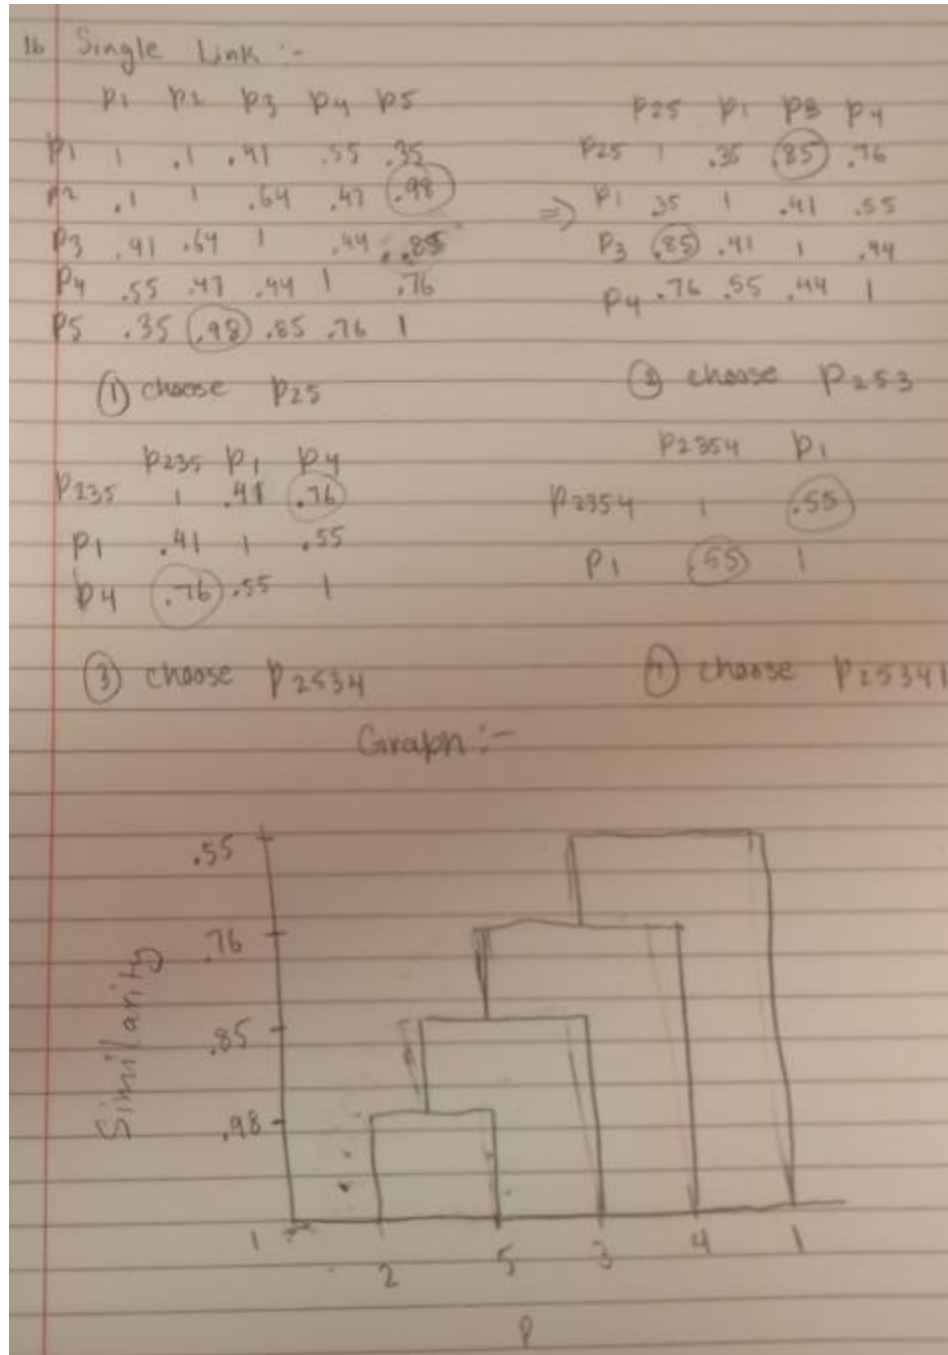 16 Single Link :-
p1 p2 p3 p4 p5
p1 1 .1 .41 .55 .35
p2 .1 1 .64 .47 .98
p3 .41 .64 1 .44 .85
p4 .55 .47 .44 1 .76
p5 .35 .98 .85 .76 1
① choose p25
⇒
p25 p1 p3 p4
p25 1 .35 .85 .76
p1 .35 1 .41 .55
p3 .85 .41 1 .44
p4 .76 .55 .44 1
② choose p253
p235 p1 p4
p235 1 .41 .76
p1 .41 1 .55
p4 .76 .55 1
③ choose p2534
p2354 p1
p2354 1 .55
p1 .55 1
④ choose p25341
Graph :-
.55
.76
.85
.98
1
Similarity
2 5 3 4 1
P